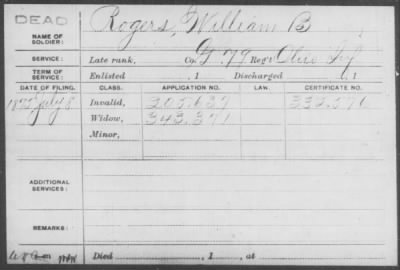 DEAD
NAME OF SOLDIER: Rogers, William B
SERVICE: Late rank, Co. G, 79 Reg't Ohio Inf
TERM OF SERVICE: Enlisted , 1 Discharged , 1
DATE OF FILING. CLASS. APPLICATION NO. LAW. CERTIFICATE NO.
1875 July 8 Invalid, 205.639 332.576
Widow, 343.371
Minor,
ADDITIONAL SERVICES:
REMARKS:
Died , 1 , at